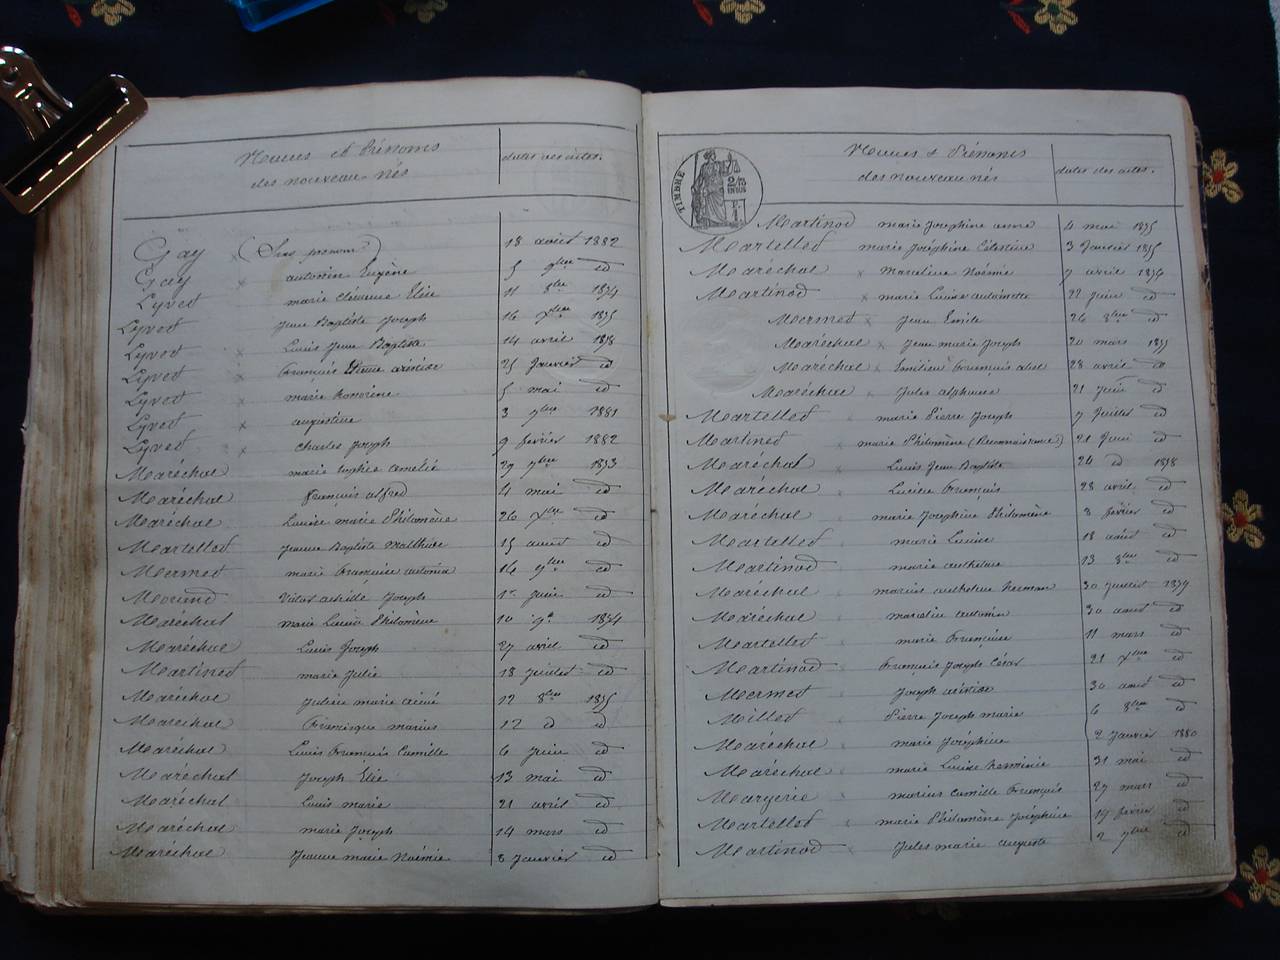 Noms et Prénoms
des nouveau-nés
dates des actes.
Gay (Sans prénom) 18 août 1882
Gay antonin Eugène 5 9bre id
Lyvet marie clémence Elise 11 8bre 1874
Lyvet Jean Baptiste Joseph 16 Xbre 1875
Lyvet Louis Jean Baptiste 14 avril 1878
Lyvet François aristide 25 Janvier id
Lyvet marie honorine 5 mai id
Lyvet augustine 3 1881
Lyvet charles Joseph 9 février 1882
Maréchal marie sophie amélie 29 7bre 1873
Maréchal françois alfred 4 mai id
Maréchal Louise marie Philomène 26 Xbre id
Martellod Jeanne Baptiste Mathilde 15 août id
Mermet marie françoise antonia 14 9bre id
Morand Victor Joseph 1er Juin id
Maréchal marie Louise Philomène 10 1874
Maréchal Louis Joseph 27 avril id
Martinod marie Julie 18 Juillet id
Maréchal Julien marie aimé 12 8bre 1875
Maréchal marius 12 d id
Maréchal Louis François Camille 6 Juin id
Maréchal Joseph Elie 13 mai id
Maréchal Louis marie 21 avril id
Maréchal marie Joseph 14 mars id
Maréchal Jeanne marie Noémie 8 Janvier id
Noms & Prénoms
des nouveau nés
dates des actes.
TIMBRE
2/10
EN SUS
Martinod marie Josephine 4 mai 1875
Martellod marie Joséphine Célestine 3 Janvier 1875
Maréchal Marceline Noémie 7 avril 1876
Martinod marie Louise antoinette 22 Juin id
Mermet Jean Emile 26 8bre id
Maréchal Jean marie Joseph 20 mars 1877
Maréchal Emilien François abel 28 avril id
Maréchal Jules alphonse 21 Juin id
Martellod marie Pierre Joseph 7 Juillet id
Martinod marie Philomène (Reconnaissance) 21 Juin id
Maréchal Louis Jean Baptiste 24 d 1878
Maréchal Lucien François 28 avril id
Maréchal marie Joséphine Philomène 8 février id
Martellod marie Louise 18 août id
Martinod marie anthelme 13 8bre id
Maréchal marius anthelme herman 30 Juillet 1879
Maréchal marcelin antonin 30 août id
Martellod marie Françoise 11 mars id
Martinod François Joseph César 21 Xbre id
Mermet Joseph aristide 30 août id
Millod Pierre Joseph marie 6 8bre id
Maréchal marie Joséphine 2 Janvier 1880
Maréchal marie Louise herminie 31 mai id
Margerie marius Camille François 27 mars id
Martellod marie Philomène Joséphine 19 février id
Martinod Jules marie auguste 2 id